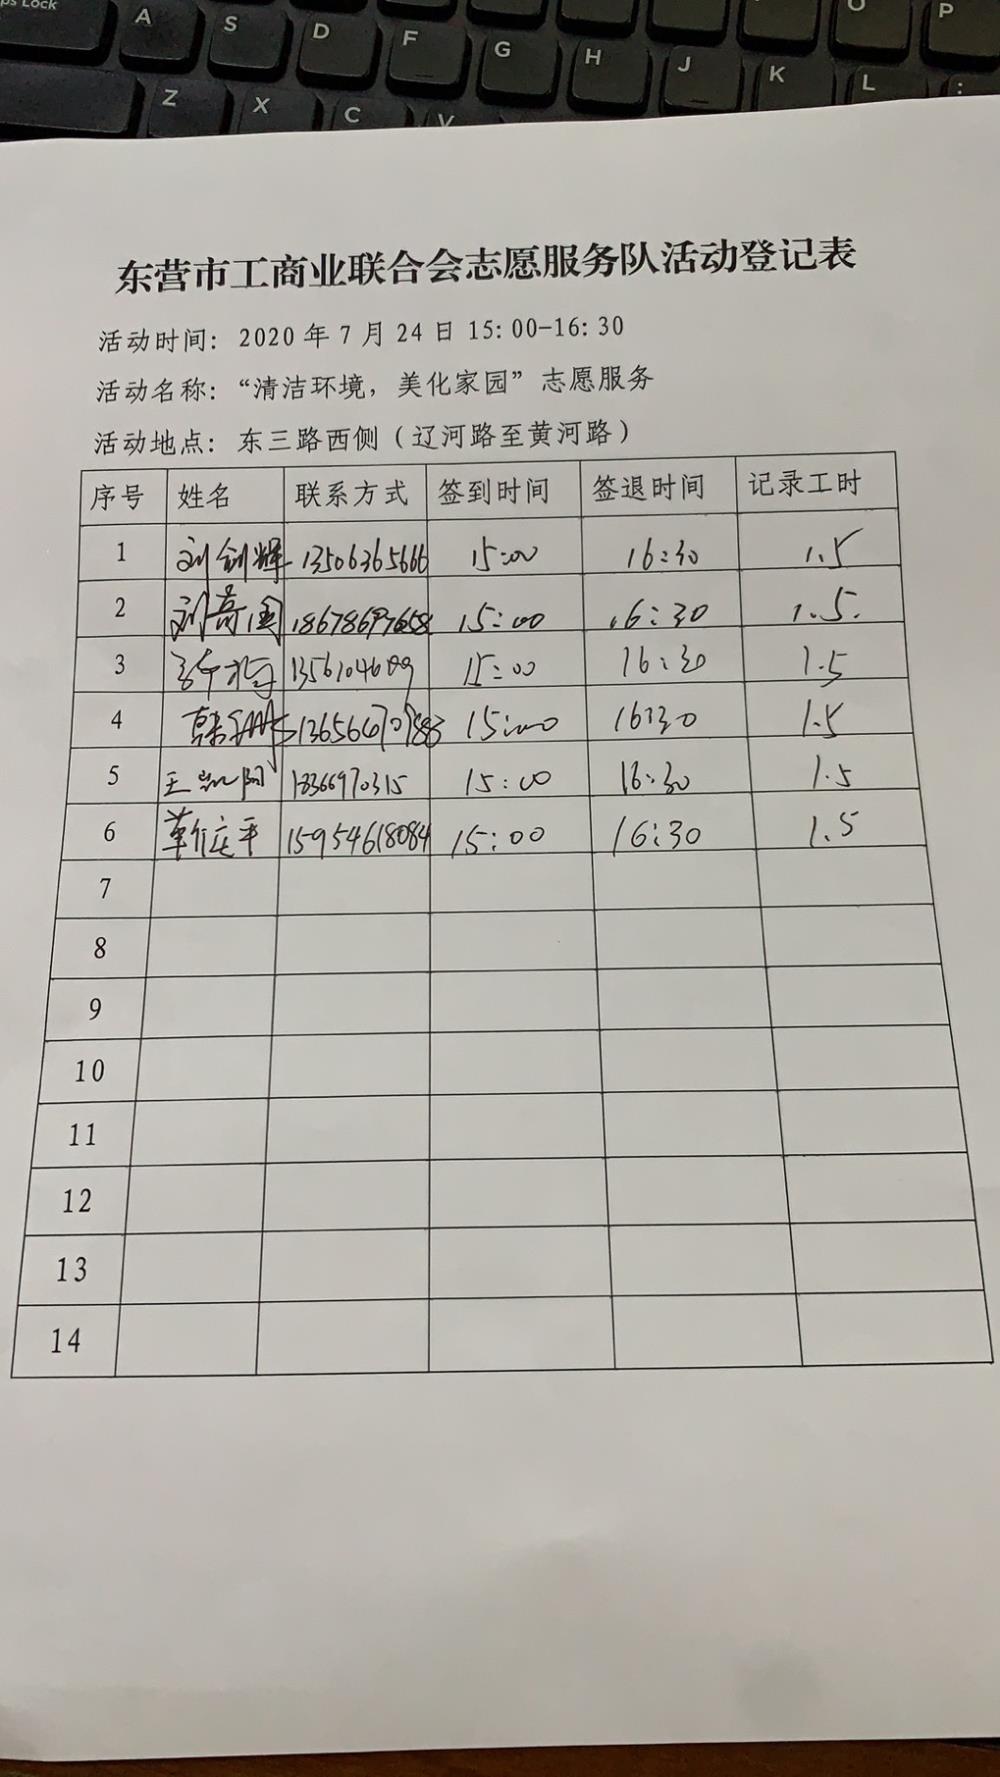 ps Lock
A S D F G H J K L :
O P
Z X C V
东营市工商业联合会志愿服务队活动登记表
活动时间：2020 年 7 月 24 日 15:00-16:30
活动名称：“清洁环境，美化家园”志愿服务
活动地点：东三路西侧（辽河路至黄河路）
序号 姓名 联系方式 签到时间 签退时间 记录工时
1 刘剑辉 13506365666 15:00 16:30 1.5
2 15:00 16:30 1.5
3 15:00 16:30 1.5
4 15:00 16:30 1.5
5 18366970315 15:00 16:30 1.5
6 靳庄平 15954618084 15:00 16:30 1.5
7
8
9
10
11
12
13
14